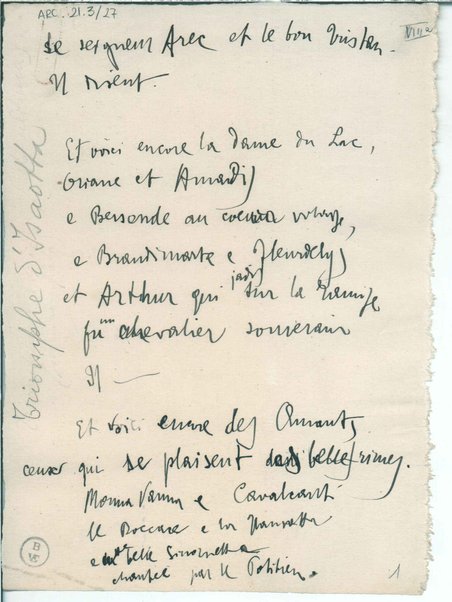 ARC. 21.3/27
VIII a
Le seigneur Arec et le bon Tristan.
Il rient.
Et voici encore la Dame du Lac,
Oriane et Amadis
e Bersende au coeur volage,
e Brandimarte e Fleurdelys
et Arthur qui jadis sur la Tamise
fu un chevalier souverain
Il —
Et voici encore des Amants,
ceux qui se plaisent belles rimes.
Monna Vanna e Cavalcanti
le Boccace e la
e belle Simonetta
chantée par le Politien.
Triomphe d'Isaotta
1